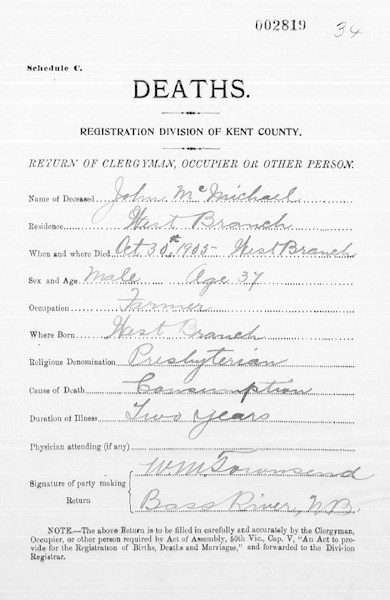 002819 34
Schedule C.
DEATHS.
REGISTRATION DIVISION OF KENT COUNTY.
RETURN OF CLERGYMAN, OCCUPIER OR OTHER PERSON.
Name of Deceased John McMichael
Residence West Branch
When and where Died Oct 30th 1905 - West Branch
Sex and Age Male Age 37
Occupation Farmer
Where Born West Branch
Religious Denomination Presbyterian
Cause of Death Consumption
Duration of Illness Two years
Physician attending (if any)
Wm Townsend
Signature of party making
Return
Bass River, N.B.
NOTE.—The above Return is to be filled in carefully and accurately by the Clergyman,
Occupier, or other person required by Act of Assembly, 50th Vic., Cap. V, "An Act to pro-
vide for the Registration of Births, Deaths and Marriages," and forwarded to the Division
Registrar.